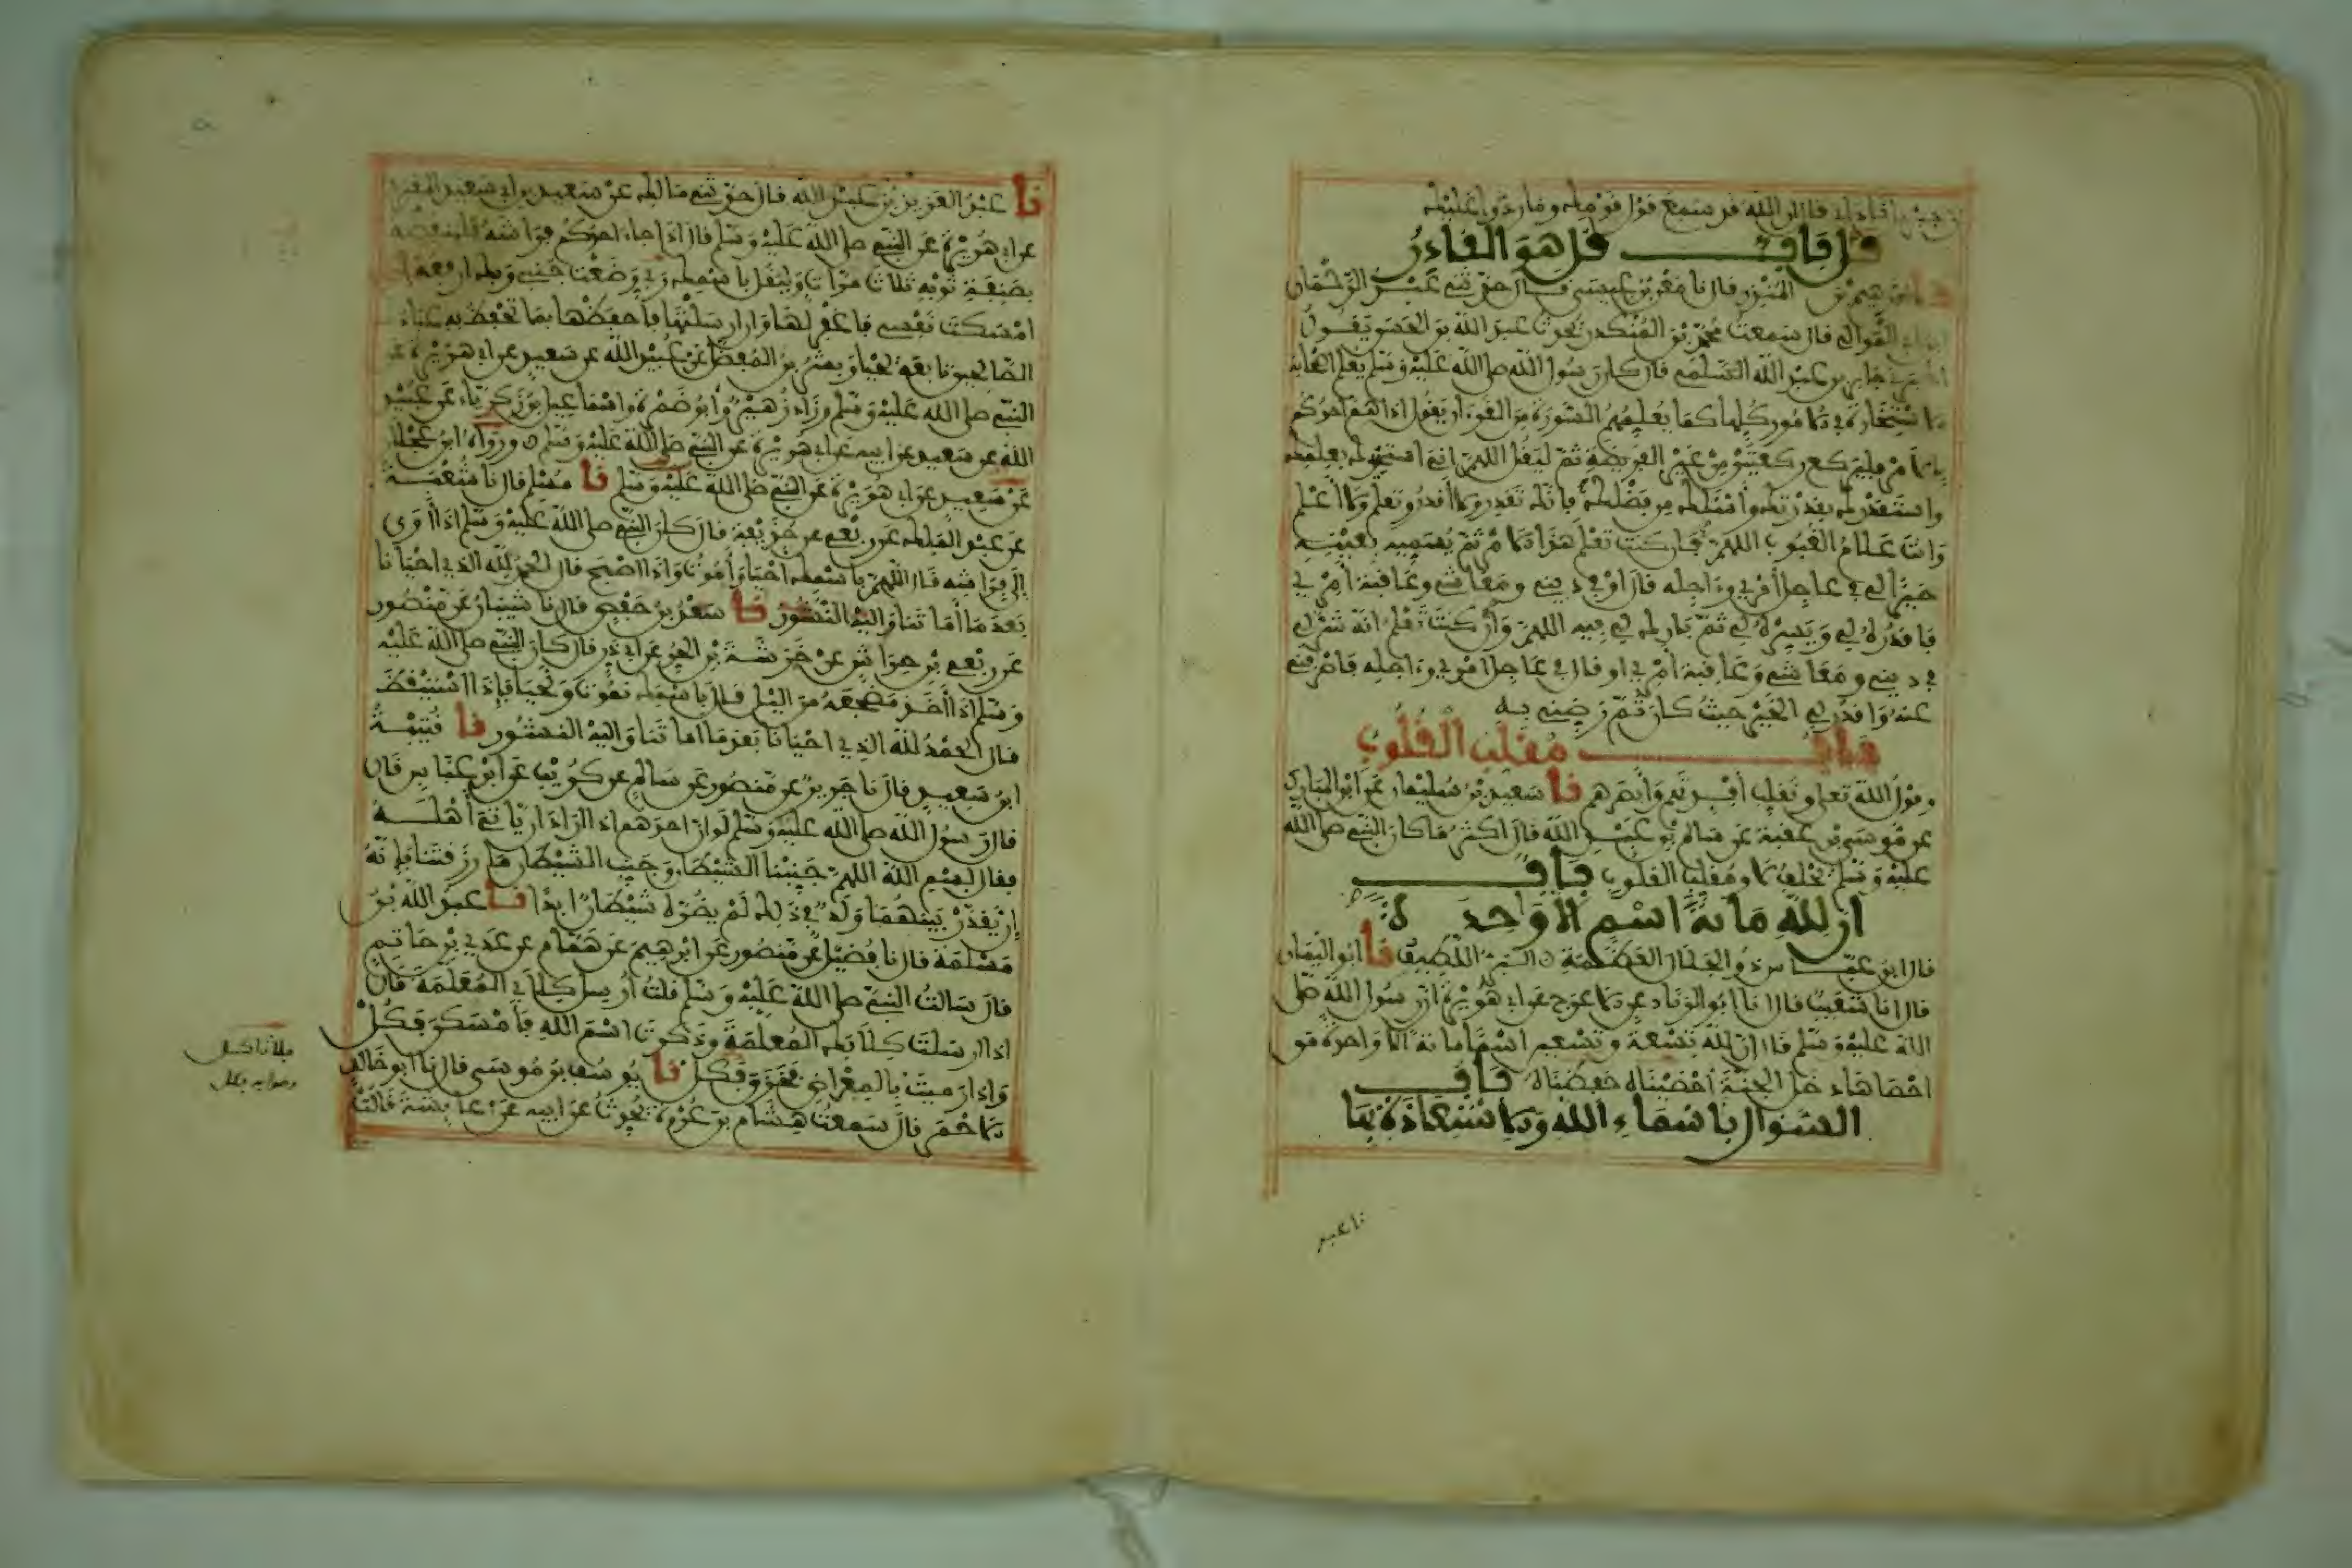 جبريل ناداني قال ان الله قد سمع قول قومك وما ردوا عليك
باب قل هو القادر
نا ابرهيم بن المنذر قال نا معن بن عيسى قال حدثني عبد الرحمان
ابن ابي الموالي قال سمعت محمد بن المنكدر يحدث عبد الله بن الحسن يقول
اخبرني جابر بن عبد الله السلمي قال كان رسول الله صلى الله عليه وسلم يعلم اصحابه
الاستخارة في الامور كلها كما يعلمهم السورة من القرءان يقول اذا هم احدكم
بالامر فليركع ركعتين من غير الفريضة ثم ليقل اللهم اني استخيرك بعلمك
واستقدرك بقدرتك واسئلك من فضلك فانك تقدر ولا أقدر وتعلم ولا أعلم
وانت علام الغيوب اللهم فان كنت تعلم هذا الامر ثم يسميه بعينه
خيرا لي في عاجل أمري وءاجله قال او في ديني ومعاشي وعاقبة أمري
فاقدره لي ويسره لي ثم بارك لي فيه اللهم وان كنت تعلم انه شر لي
في ديني ومعاشي وعاقبة أمري او قال في عاجل امري وءاجله فاصرفني
عنه واقدر لي الخير حيث كان ثم رضني به
باب مقلب القلوب
وقول الله تعلى ونقلب أفئدتهم وأبصرهم نا سعيد بن سليمان عن ابن المبارك
عن موسى بن عقبة عن سالم بن عبد الله قال اكثر ما كان النبي صلى الله
عليه وسلم يحلف لا ومقلب القلوب باب
ان لله مائة اسم الا واحدة
قال ابن عباس ذو الجلال العظمة البر اللطيف نا ابو اليمان
قال انا شعيب قال انا ابو الزناد عن الاعرج عن ابي هريرة ان رسول الله صلى
الله عليه وسلم قال ان لله تسعة وتسعين اسما مائة الا واحدة من
احصاها دخل الجنة أحصيناه حفظناه باب
السؤال باسماء الله والاستعاذة بها
نا عبد
نا عبد العزيز بن عبد الله قال حدثني مالك عن سعيد بن ابي سعيد المقبري
عن ابي هريرة عن النبي صلى الله عليه وسلم قال اذا جاء احدكم فراشه فلينفضه
بصنفة ثوبه ثلاث مرات وليقل باسمك ربي وضعت جنبي وبك ارفعه ان
امسكت نفسي فاغفر لها وان ارسلتها فاحفظها بما تحفظ به عبادك
الصالحين تابعه يحيى وبشر بن المفضل عن عبيد الله عن سعيد عن ابي هريرة عن
النبي صلى الله عليه وسلم وزاد زهير وأبو ضمرة واسماعيل بن زكرياء عن عبيد
الله عن سعيد عن ابيه عن ابي هريرة عن النبي صلى الله عليه وسلم ورواه ابن عجلان
عن سعيد عن ابي هريرة عن النبي صلى الله عليه وسلم نا مسلم قال نا شعبة
عن عبد الملك عن ربعي عن حذيفة قال كان النبي صلى الله عليه وسلم اذا أوى
إلى فراشه قال اللهم باسمك احيا وأموت واذا اصبح قال الحمد لله الذي احيانا
بعد ما أماتنا واليه النشور نا سعد بن حفص قال نا شيبان عن منصور
عن ربعي بن حراش عن خرشة بن الحر عن ابي ذر قال كان النبي صلى الله عليه
وسلم اذا أخذ مضجعه من الليل قال باسمك نموت ونحيا فإذا استيقظ
قال الحمد لله الذي احيانا بعد ما اماتنا واليه النشور نا قتيبة
ابن سعيد قال نا جرير عن منصور عن سالم عن كريب عن ابن عباس قال
قال رسول الله صلى الله عليه وسلم لو ان احدهم اذا اراد ان ياتي أهله
فقال بسم الله اللهم جنبنا الشيطان وجنب الشيطان ما رزقتنا فإنه
إن يقدر بينهما ولد في ذلك لم يضره شيطان ابدا نا عبد الله بن
مسلمة قال نا فضيل عن منصور عن ابرهيم عن همام عن عدي بن حاتم
قال سالت النبي صلى الله عليه وسلم قلت أرسل كلابي المعلمة قال
اذا ارسلت كلابك المعلمة وذكرت اسم الله فأمسكن فكل
واذا رميت بالمعراض فخزق فكل نا يوسف بن موسى قال نا ابو خالد
الاحمر قال سمعت هشام بن عروة يحدث عن ابيه عن عايشة قالت